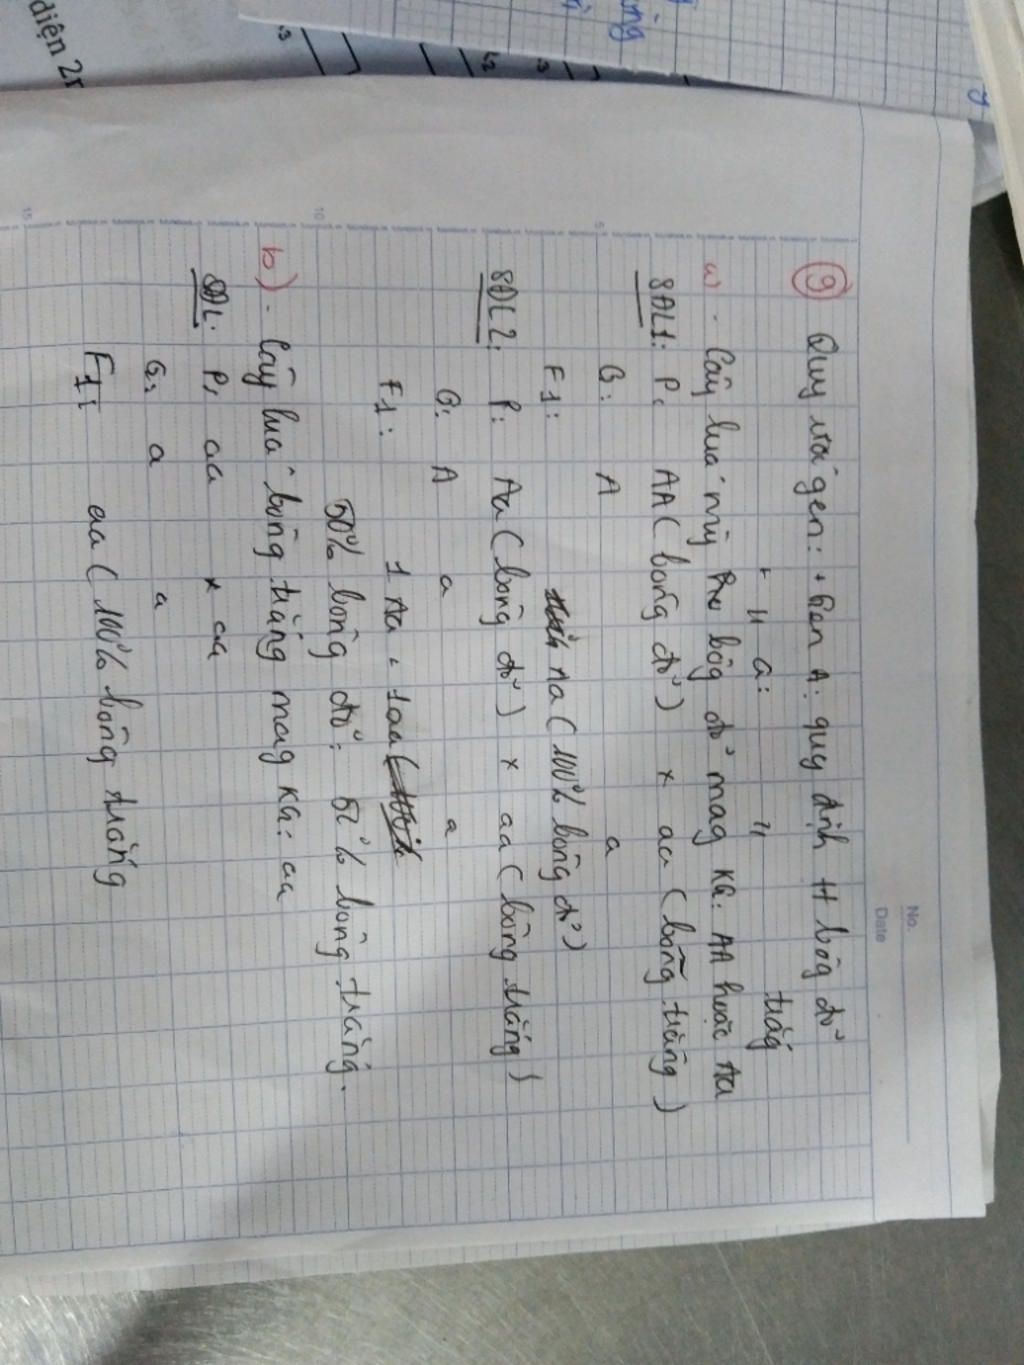 diện 2r
ung
No.
Date
9 Quy ước gen: + Gen A: quy định H bôg đỏ
+ " a: " trắg
a) - Cây luá mỳ bôg đỏ mag KG: AA hoặc Aa
SĐL1: P: AA (bông đỏ) x aa (bông trắng)
G: A a
F1: Aa (100% bông đỏ)
SĐL2: P: Aa (bông đỏ) x aa (bông trắng)
G: A a a
F1: 1 Aa : 1aa
50% bông đỏ: 50% bông trắng.
b) - Cây luá bông trắng mag KG: aa
SĐL: P: aa x aa
G: a a
F1: aa (100% bông trắng
5
10
15